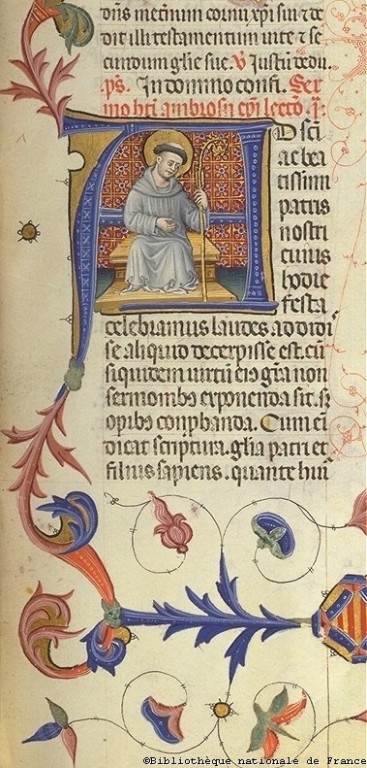 dñs mecinum cornu xp̄i sui ⁊ de
dit illi testamentum uite ⁊ se
cundum glie sue. ꝟ Iustū dedu.
ps. In domino confi. Ser
mo bti ambrosii epi lectō. j.
AD sc̄i
ac bea
tissimi
patris
nostri
cuius
hodie
festa
celebramus laudes. addidi
se aliquid decerpisse est. cū
siquidem uirtutū eiꝰ gr̄a non
sermonibꝰ exponenda sit. sꝫ
opibꝰ conp̄banda. Cum eī
dicat scriptura. glia patris est
filius sapiens. quante huiꝰ
©Bibliothèque nationale de France